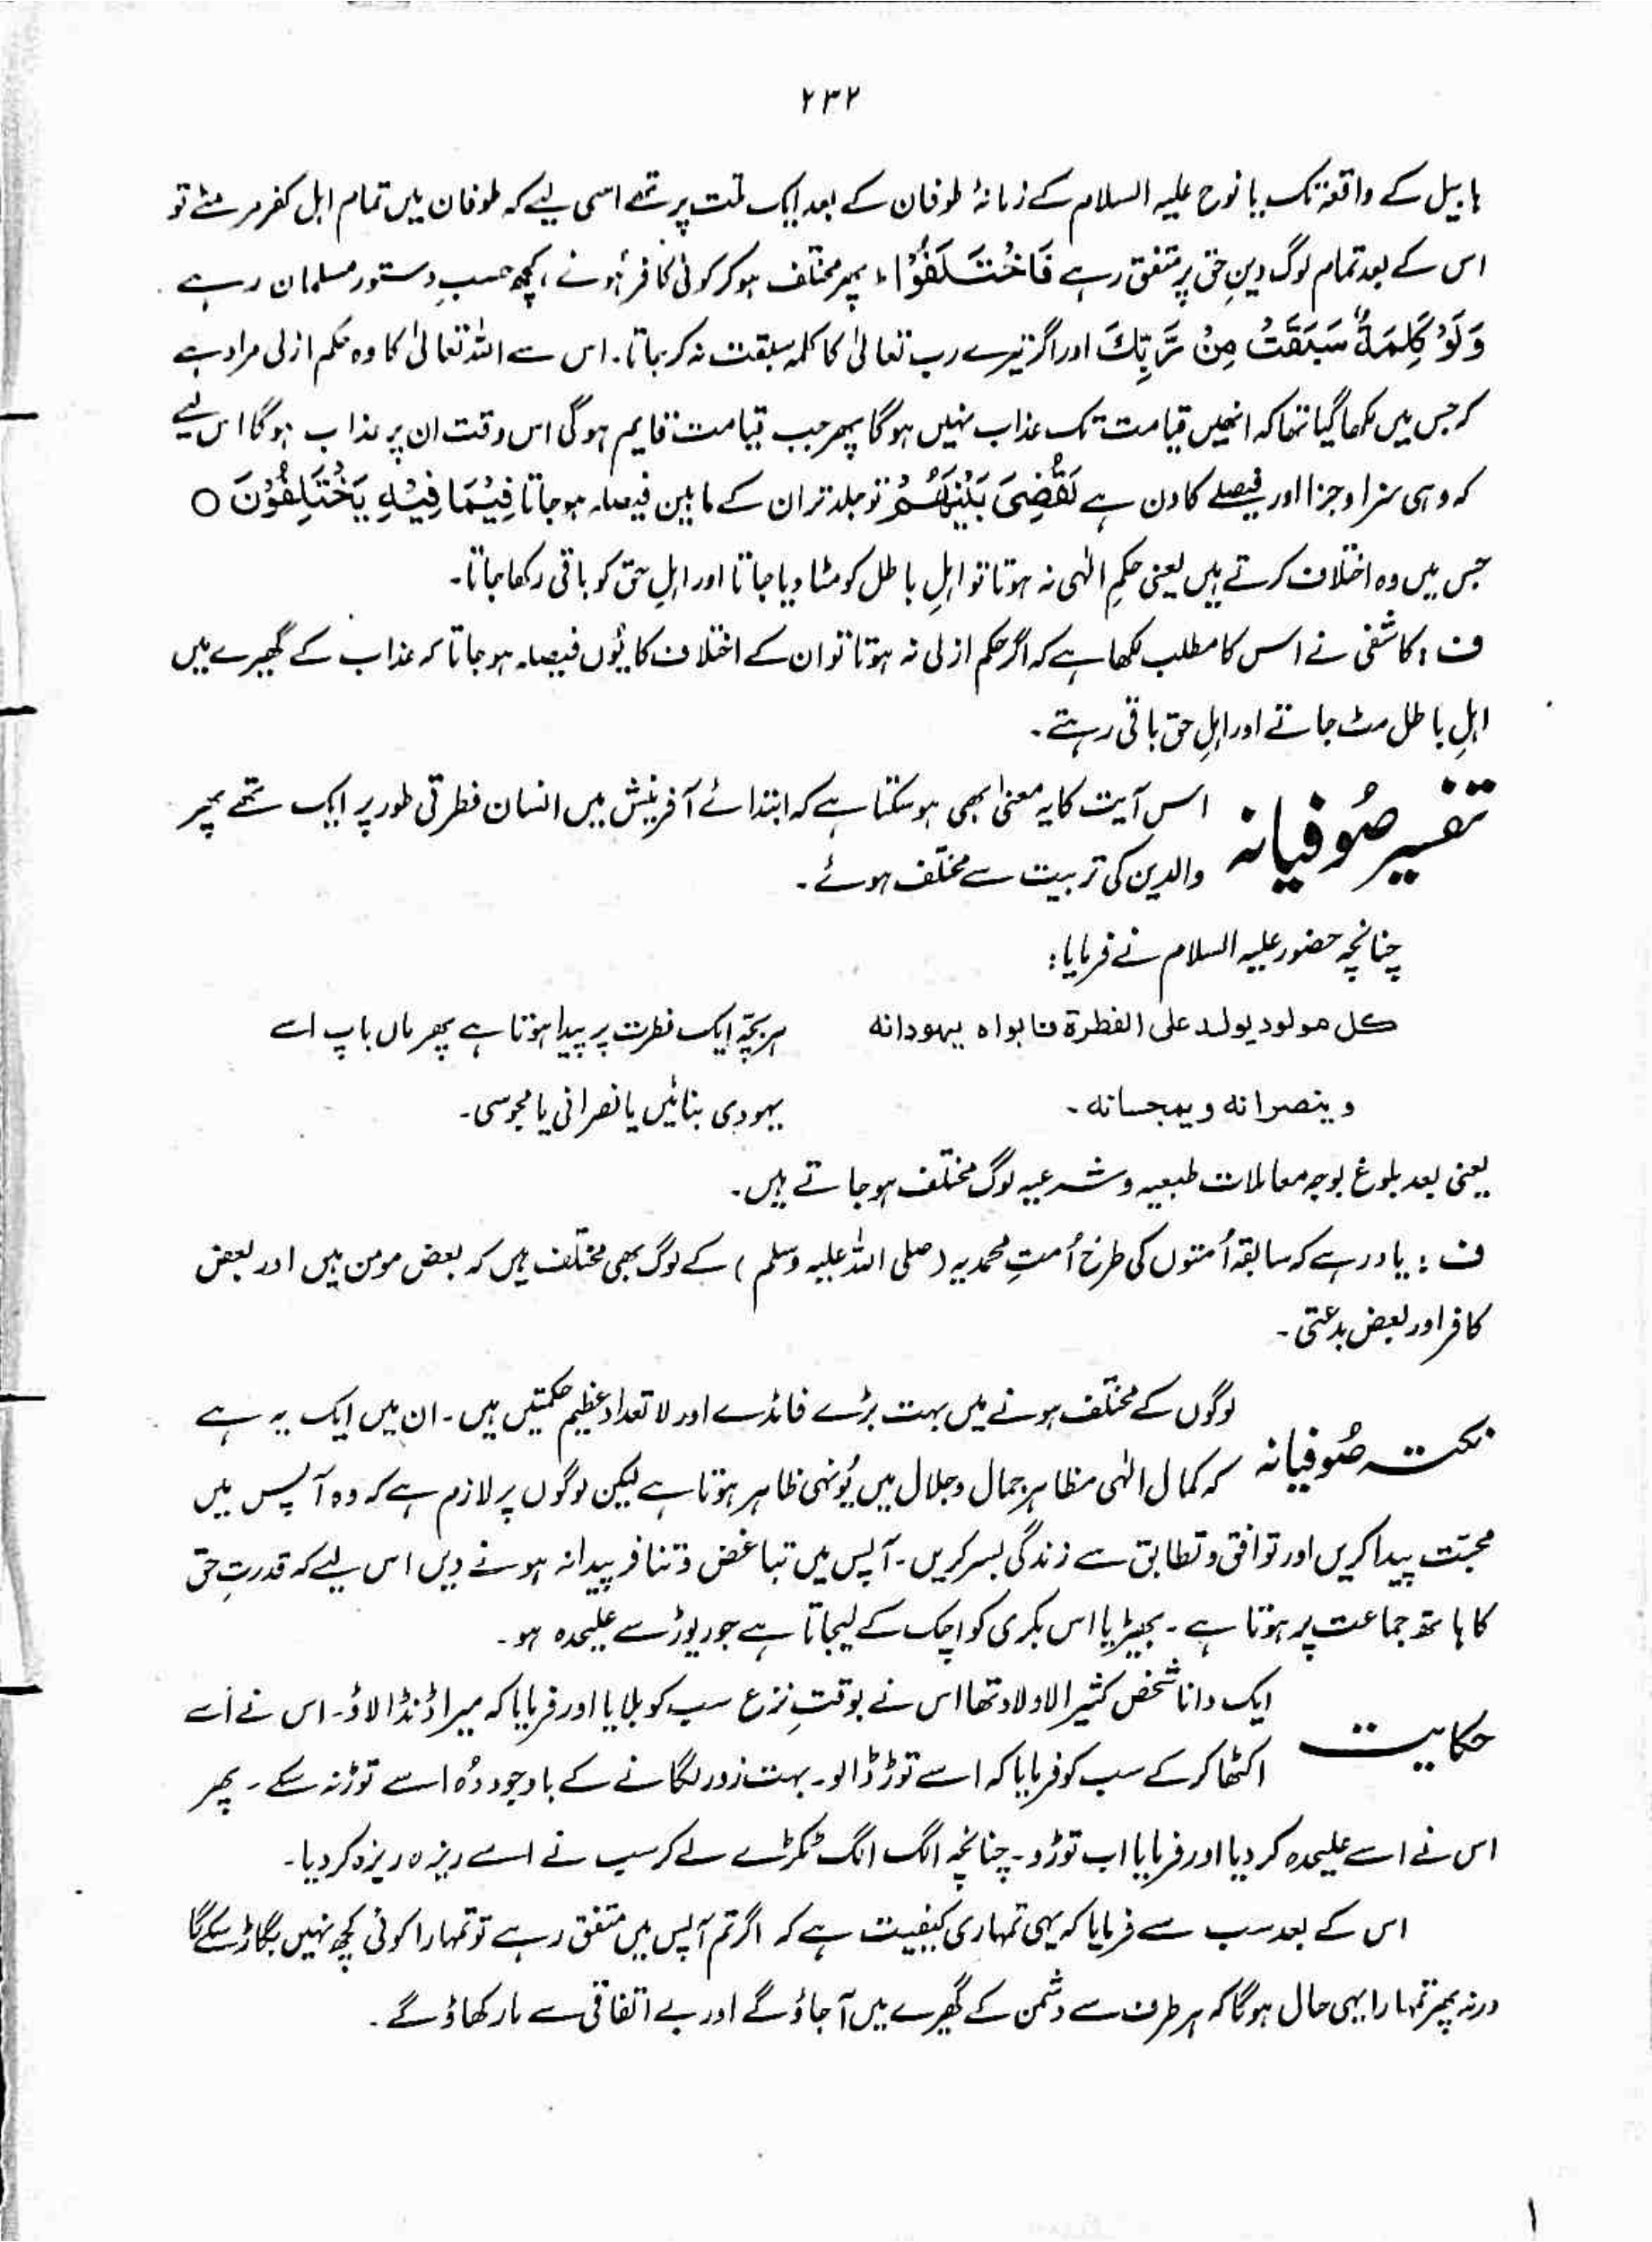 ۲۳۲
ہابیل کے واقعہ تک یا نوح علیہ السلام کے زمانۂ طوفان کے بعد ایک ملت پر تھے اسی لیے کہ طوفان میں تمام اہل کفر مر مٹے تو
اس کے بعد تمام لوگ دینِ حق پر متفق رہے فَاخْتَلَفُوْا، پھر مختلف ہو کر کوئی کافر ہوئے، کچھ حسبِ دستور مسلمان رہے۔
وَلَوْ كَلِمَةٌ سَبَقَتْ مِنْ رَّبِّكَ اور اگر تیرے رب تعالیٰ کا کلمہ سبقت نہ کر جاتا۔ اس سے اللہ تعالیٰ کا وہ حکم ازلی مراد ہے
کہ جس میں لکھا گیا تھا کہ انھیں قیامت تک عذاب نہیں ہوگا پھر جب قیامت قایم ہوگی اس وقت ان پر عذاب ہوگا اس لیے
کہ وہی سزا و جزا اور فیصلے کا دن ہے لَقُضِيَ بَيْنَهُمْ تو جلد تر ان کے مابین فیصلہ ہو جاتا فِيْمَا فِيْهِ يَخْتَلِفُوْنَ ○
جس میں وہ اختلاف کرتے ہیں یعنی حکمِ الٰہی نہ ہوتا تو اہلِ باطل کو مٹا دیا جاتا اور اہلِ حق کو باقی رکھا جاتا۔
ف : کاشفی نے اس کا مطلب لکھا ہے کہ اگر حکم ازلی نہ ہوتا تو ان کے اختلاف کا یُوں فیصلہ ہو جاتا کہ عذاب کے گھیرے میں
اہلِ باطل مٹ جاتے اور اہلِ حق باقی رہتے۔
تفسیر صُوفیانہ اس آیت کا یہ معنیٰ بھی ہو سکتا ہے کہ ابتدائے آفرینش میں انسان فطرتی طور پر ایک تھے پھر
والدین کی تربیت سے مختلف ہوئے۔
چنانچہ حضور علیہ السلام نے فرمایا:
كل مولود يولد على الفطرة فابواه يهودانه ہر بچّہ ایک فطرت پر پیدا ہوتا ہے پھر ماں باپ اسے
وينصرانه ويمجسانه۔ یہودی بنائیں یا نصرانی یا مجوسی۔
یعنی بعد بلوغ بوجہ معاملات طبعیہ و شرعیہ لوگ مختلف ہو جاتے ہیں۔
ف : یاد رہے کہ سابقہ اُمتوں کی طرح اُمتِ محمدیہ (صلی اللہ علیہ وسلم) کے لوگ بھی مختلف ہیں کہ بعض مومن ہیں اور بعض
کافر اور بعض بدعتی۔
نکتہ صُوفیانہ لوگوں کے مختلف ہونے میں بہت بڑے فائدے اور لا تعداد عظیم حکمتیں ہیں۔ ان میں ایک یہ ہے
کہ کمال الٰہی مظاہر جمال و جلال میں یُونہی ظاہر ہوتا ہے لیکن لوگوں پر لازم ہے کہ وہ آپس میں
محبّت پیدا کریں اور توافق و تطابق سے زندگی بسر کریں۔ آپس میں تباغض و تنافر پیدا نہ ہونے دیں اس لیے کہ قدرتِ حق
کا ہاتھ جماعت پر ہوتا ہے۔ بھیڑیا اس بکری کو اچک کے لیجاتا ہے جو ریوڑ سے علیحدہ ہو۔
حکایت ایک دانا شخص کثیر الاولاد تھا اس نے بوقتِ نزع سب کو بلایا اور فرمایا کہ میرا ڈنڈا لاؤ۔ اس نے اُسے
اکٹھا کر کے سب کو فرمایا کہ اسے توڑ ڈالو۔ بہت زور لگانے کے باوجود وُہ اسے توڑ نہ سکے۔ پھر
اس نے اسے علیحدہ کر دیا اور فرمایا اب توڑو۔ چنانچہ الگ الگ ٹکڑے لے کر سب نے اسے ریزہ ریزہ کر دیا۔
اس کے بعد سب سے فرمایا کہ یہی تمہاری کیفیت ہے کہ اگر تم آپس میں متفق رہے تو تمہارا کوئی کچھ نہیں بگاڑ سکے گا
ورنہ پھر تمہارا یہی حال ہوگا کہ ہر طرف سے دشمن کے گھیرے میں آ جاؤ گے اور بے اتفاقی سے مار کھاؤ گے۔
۱